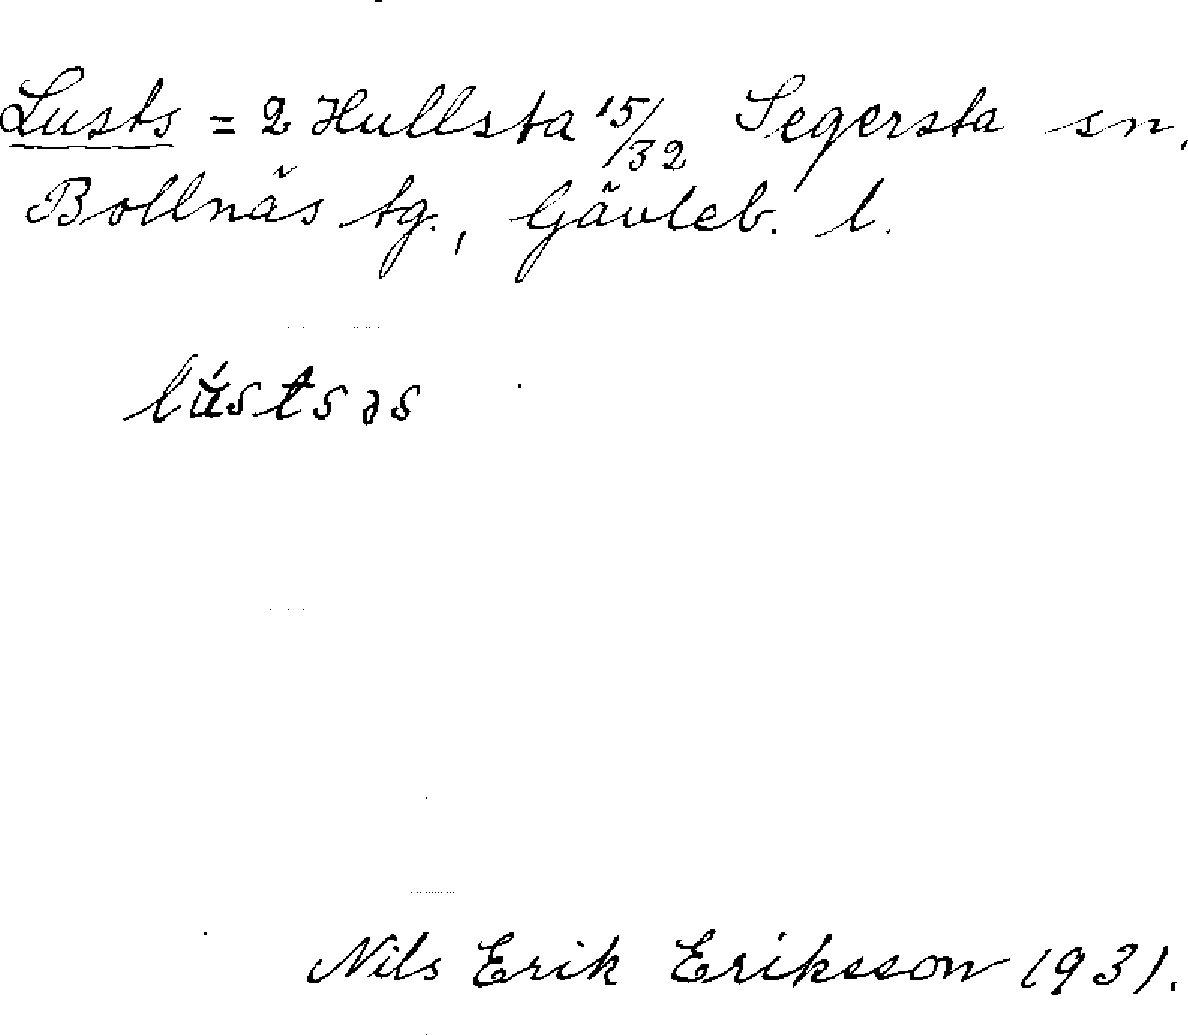 Lusts = 2 Hullsta 15/32 Segersta sn.
Bollnäs tg., Gävleb. l.
lústsəs
Nils Erik Eriksson 1931.